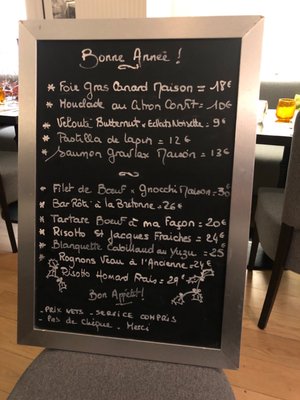 Bonne Année !
* Foie Gras Canard Maison = 18€
* Mouclade au Citron Confit = 10€
* Velouté Butternut & Eclats Noisette = 9€
* Pastilla de lapin = 12€
* Saumon Gravlax Maison = 13€
* Filet de Boeuf & Gnocchi Maison = 30€
* Bar Rôti à la Bretonne = 26€
* Tartare Boeuf à ma Façon = 20€
* Risotto St Jacques Fraiches = 24€
* Blanquette Cabillaud au Yuzu = 25
* Rognons Veau à l'Ancienne = 24€
* Risotto Homard Frais = 29€
Bon Appétit !
- PRIX NETS - SERVICE COMPRIS
- Pas de Chèque - Merci